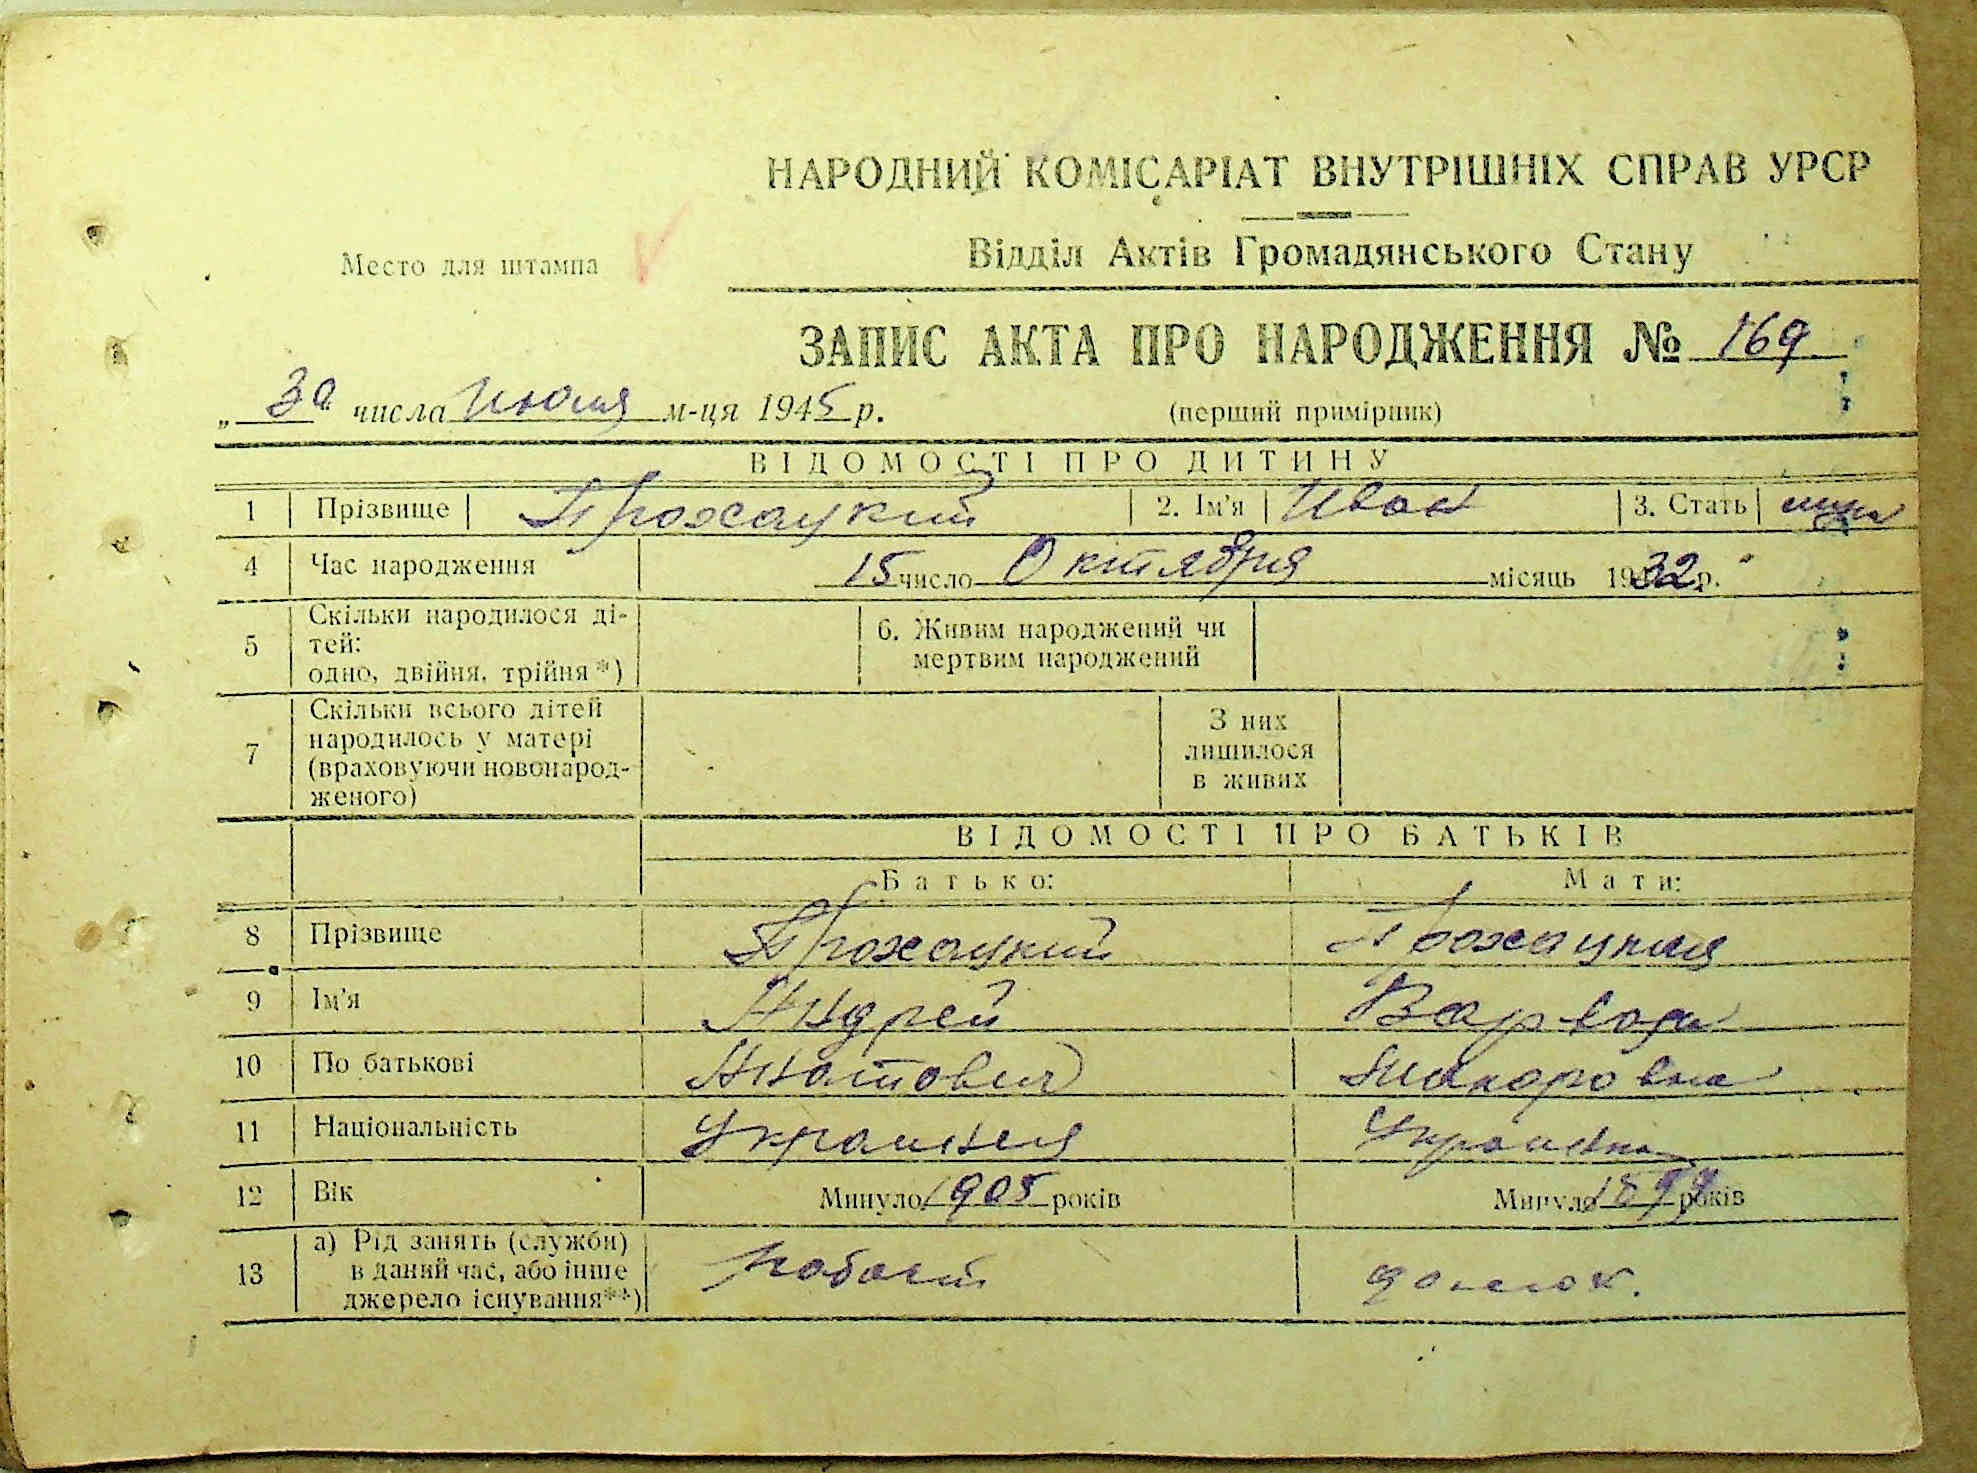 НАРОДНИЙ КОМІСАРІАТ ВНУТРІШНІХ СПРАВ УРСР
Место для штампа
Відділ Актів Громадянського Стану
ЗАПИС АКТА ПРО НАРОДЖЕННЯ № 169
„30“ числа Июля м-ця 1945 р.
(перший примірник)
ВІДОМОСТІ ПРО ДИТИНУ
1 Прізвище Прохацкий 2. Ім'я Иван 3. Стать
4 Час народження 15 число Октября місяць 1932 р.
5 Скільки народилося ді-
тей:
одно, двійня, трійня*)
6. Живим народжений чи
мертвим народжений
7 Скільки всього дітей
народилось у матері
(враховуючи новонарод-
женого)
З них
лишилося
в живих
ВІДОМОСТІ ПРО БАТЬКІВ
Батько: Мати:
8 Прізвище Прохацкий Прохацкая
9 Ім'я Андрей Варвара
10 По батькові
11 Національність Украинец Украинка
12 Вік Минуло 1905 років Минуло 1899 років
13 а) Рід занять (служби)
в даний час, або інше
джерело існування**)
домохоз.